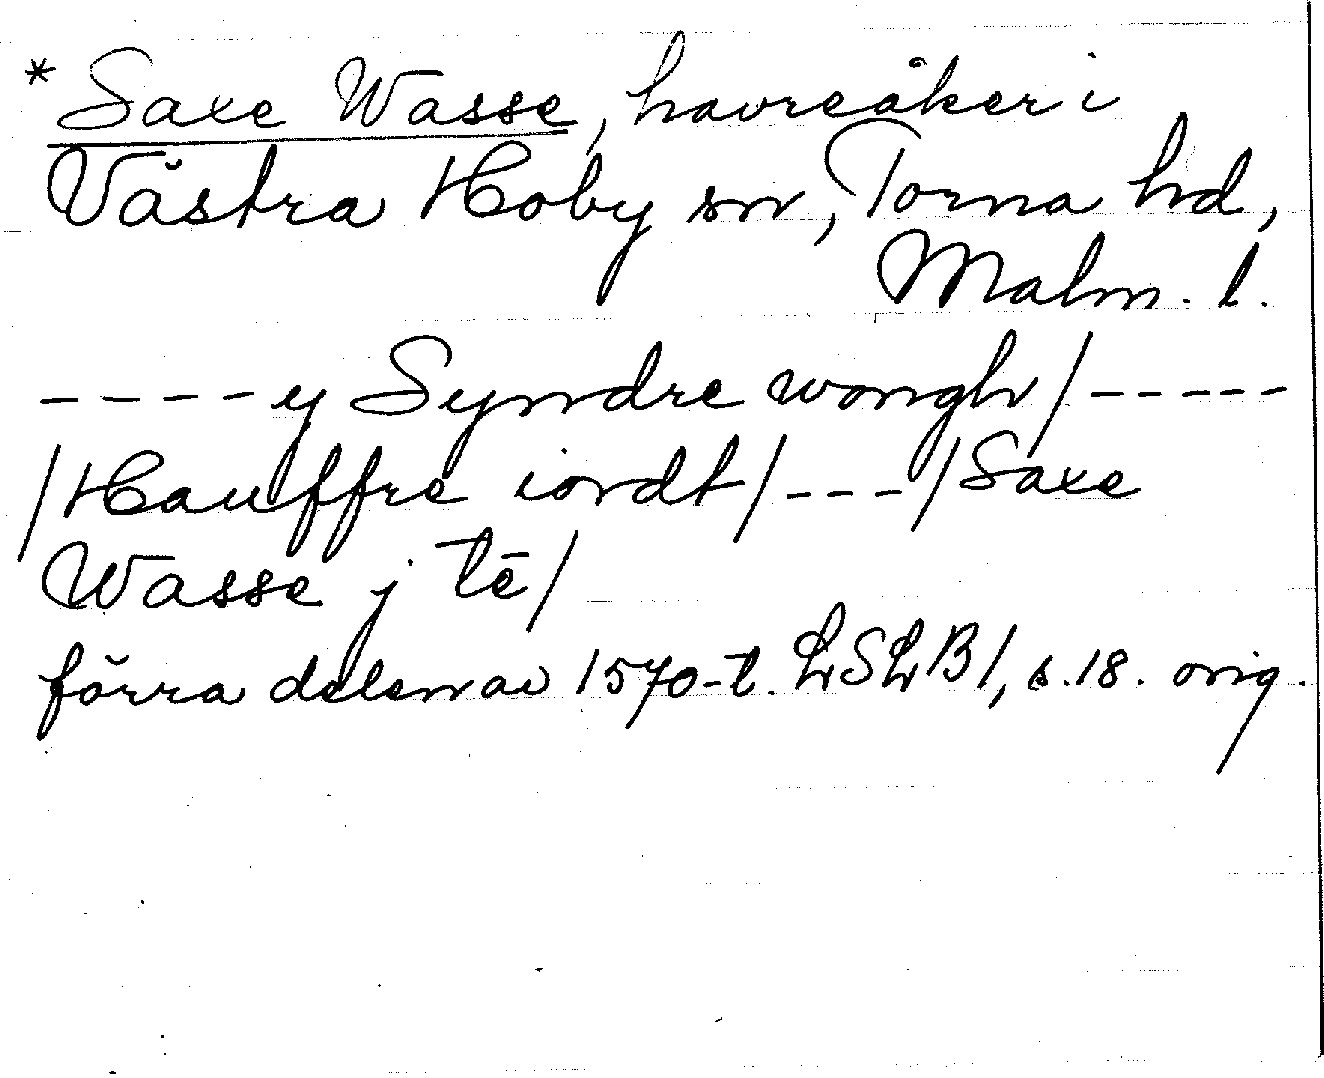 * Saxe Wasse, havreåker i
Västra Hoby sn, Torna hd,
Malm. l.
----- y Syndre wongh/-----
/Hauffre iordt/---/Saxe
Wasse j tē/
förra delen av 1570-t. LSLB1, s.18. orig.